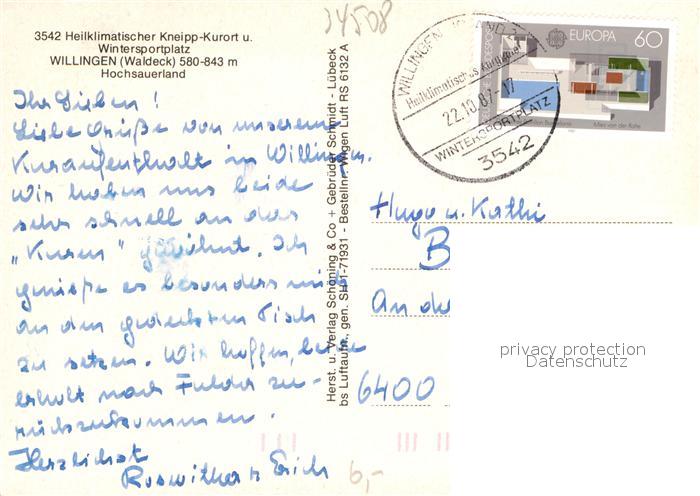 34508
3542 Heilklimatischer Kneipp-Kurort u.
Wintersportplatz
WILLINGEN (Waldeck) 580-843 m
Hochsauerland
Ihr Lieben!
Liebe Grüße von unserem
Kuraufenthalt in Willingen.
Wir haben uns beide
sehr schnell an das
"Kuren" gewöhnt. Ich
genieße es besonders mich
an den gedeckten Tisch
zu setzen. Wir hoffen, beide
erholt nach Fulda zu-
rückzukommen.
Herzlichst
Roswitha + Erich
Herst. u. Verlag Schöning & Co + Gebrüder Schmidt - Lübeck
bs Luftaufn., gen. SH 1-71931 - Bestellnr. Wigen Luft RS 6132 A
WILLINGEN
Heilklimatisches
22.10.87-17
WINTERSPORTPLATZ
3542
EUROPA 60
Mies van der Rohe
Hugo u. Käthi
B
An de
6400
privacy protection
Datenschutz
6,-